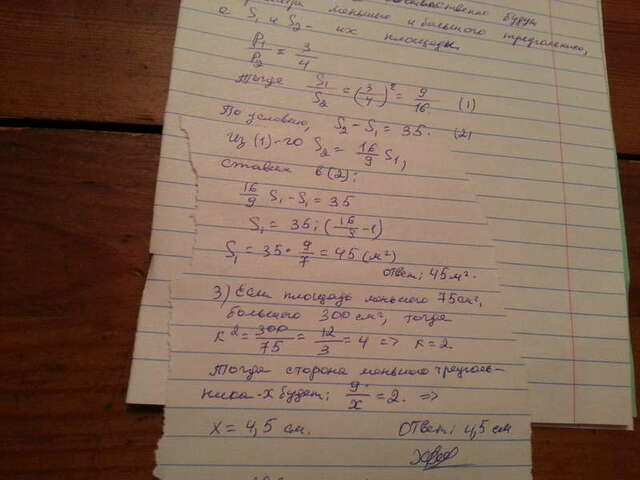 меньшего и большего треугольника,
а S₁ и S₂ - их площади.
P₁/P₂ = 3/4
Тогда S₁/S₂ = (3/4)² = 9/16 (1)
По условию, S₂ - S₁ = 35. (2)
Из (1)-го S₂ = 16/9 S₁,
ставим в (2):
16/9 S₁ - S₁ = 35
S₁ = 35 : (16/9 - 1)
S₁ = 35 * 9/7 = 45 (м²)
Ответ: 45 м².
3) Если площадь меньшего 75 см²,
большего 300 см², тогда
K² = 300/75 = 12/3 = 4 => K = 2
Тогда сторона меньшего треуголь-
ника - x будет: 9/x = 2. =>
x = 4,5 см.
Ответ: 4,5 см